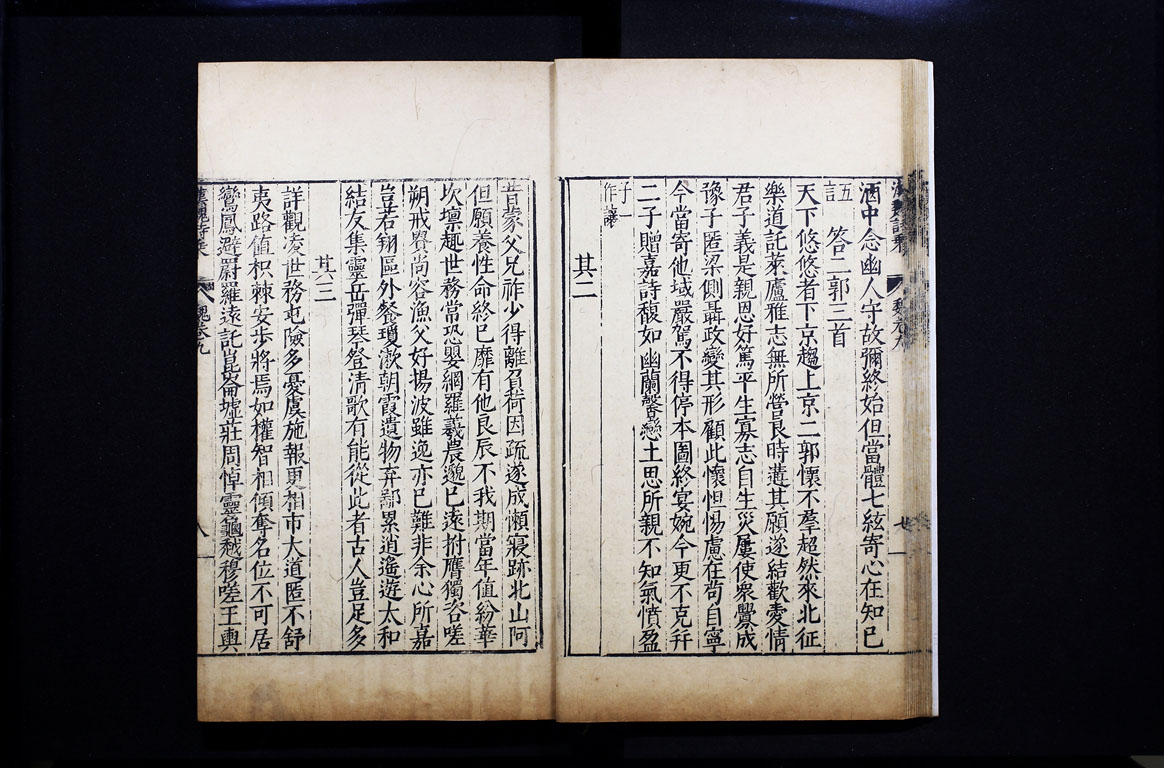 漢魏詩乘 魏卷九
酒中念幽人守故彌終始但當體七絃寄心在知已
五言 答二郭三首
天下悠悠者下京趨上京二郭懷不羣超然來北征
樂道託萊廬雅志無所營良時遘其願遂結歡愛情
君子義是親恩好篤平生寡志自生災屢使衆釁成
豫子匿梁側聶政變其形顧此懷怛惕慮在苟自寧
今當寄他域嚴駕不得停本圖終宴婉今更不克幷
二子贈嘉詩馥如幽蘭馨戀土思所親不知氣憤盈
子一
作讓
其二
昔蒙父兄祚少得離負荷因疏遂成懶寢跡北山阿
但願養性命終已靡有他良辰不我期當年值紛華
坎壈趣世務常恐嬰網羅羲農邈已遠拊膺獨咨嗟
朔戒貴尚容漁父好揚波雖逸亦已難非余心所嘉
豈若翔區外餐瓊漱朝霞遺物弃鄙累逍遙遊太和
結友集靈岳彈琴登清歌有能從此者古人豈足多
其三
詳觀凌世務屯險多憂虞施報更相市大道匿不舒
夷路值枳棘安步將焉如權智相傾奪名位不可居
鸞鳳避罻羅遠託崑崙墟莊周悼靈龜越穆嗟王輿
漢魏詩乘 魏卷九 八